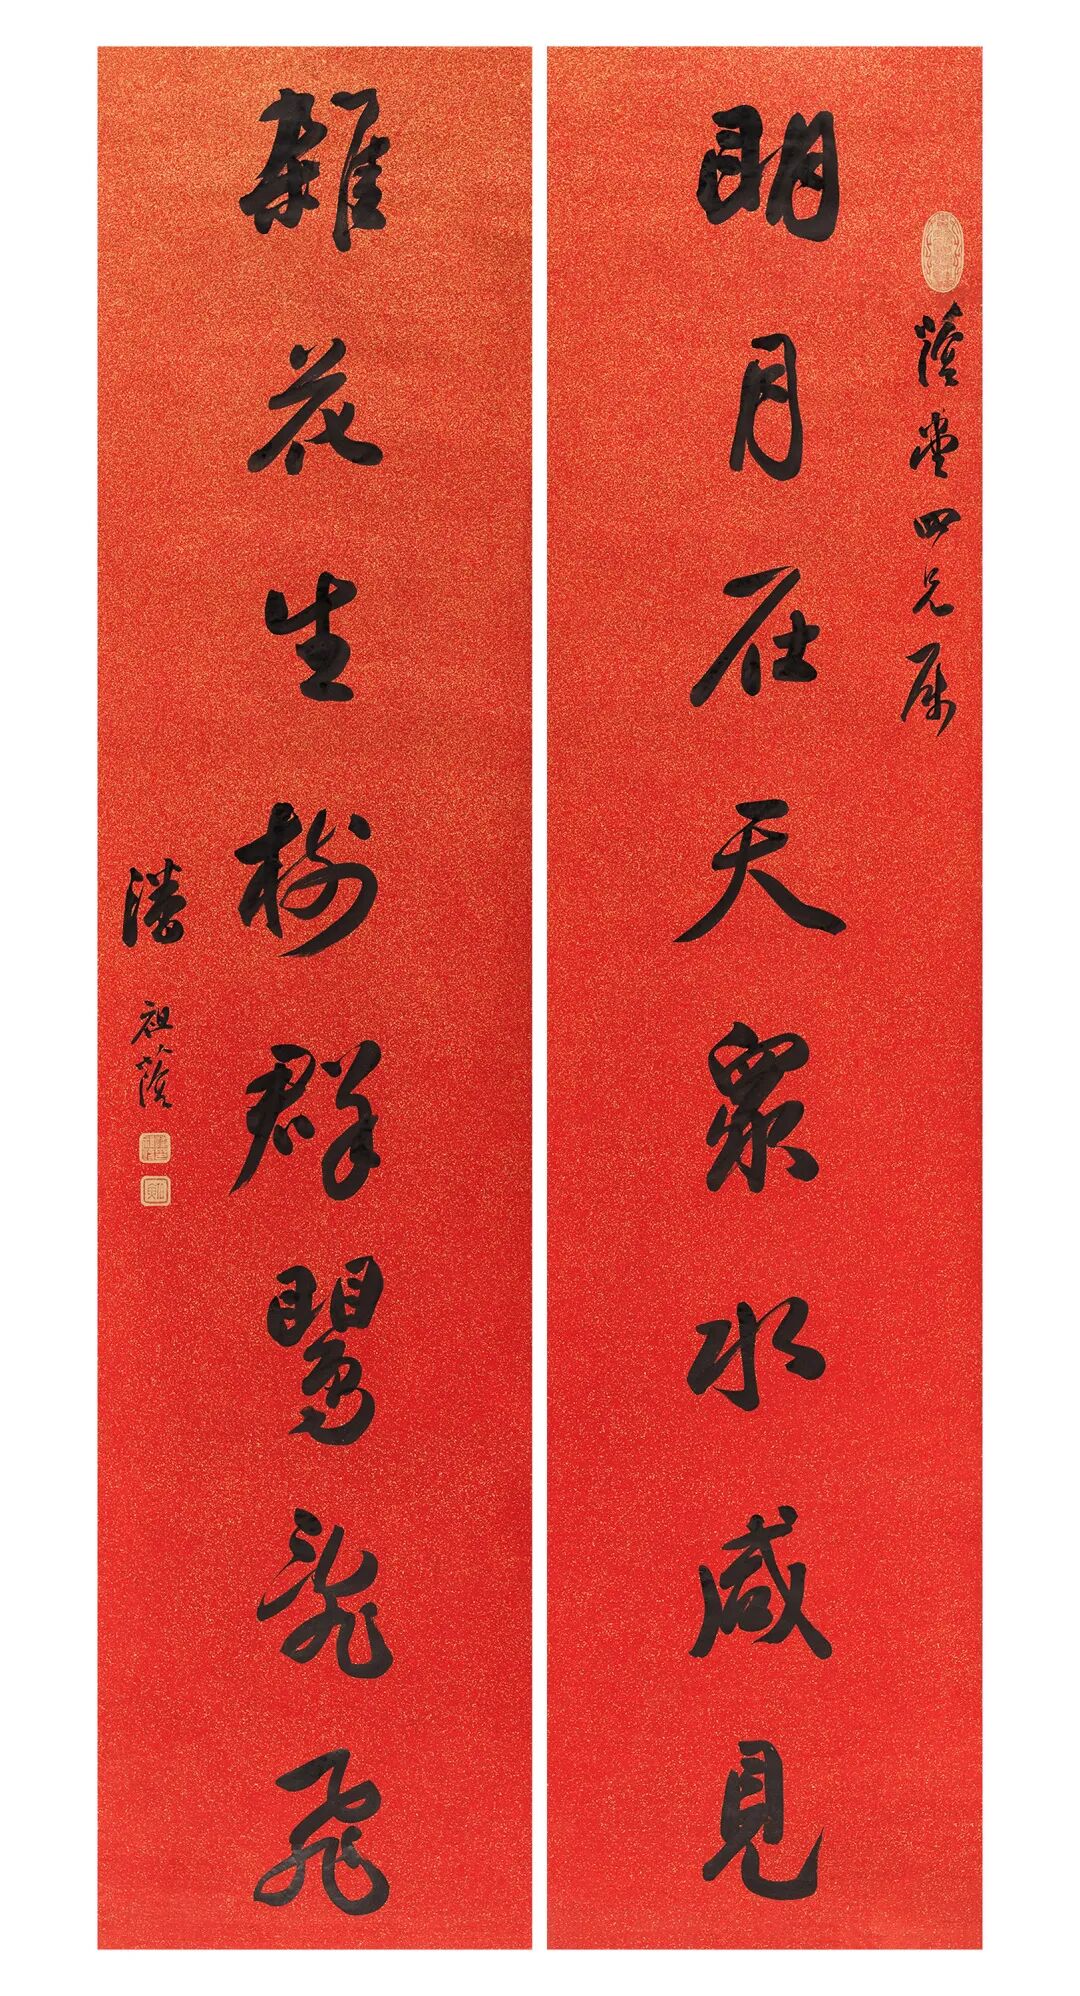 蔭堂四兄属
明月在天眾水咸見
雜花生樹群鶯亂飛
潘祖蔭